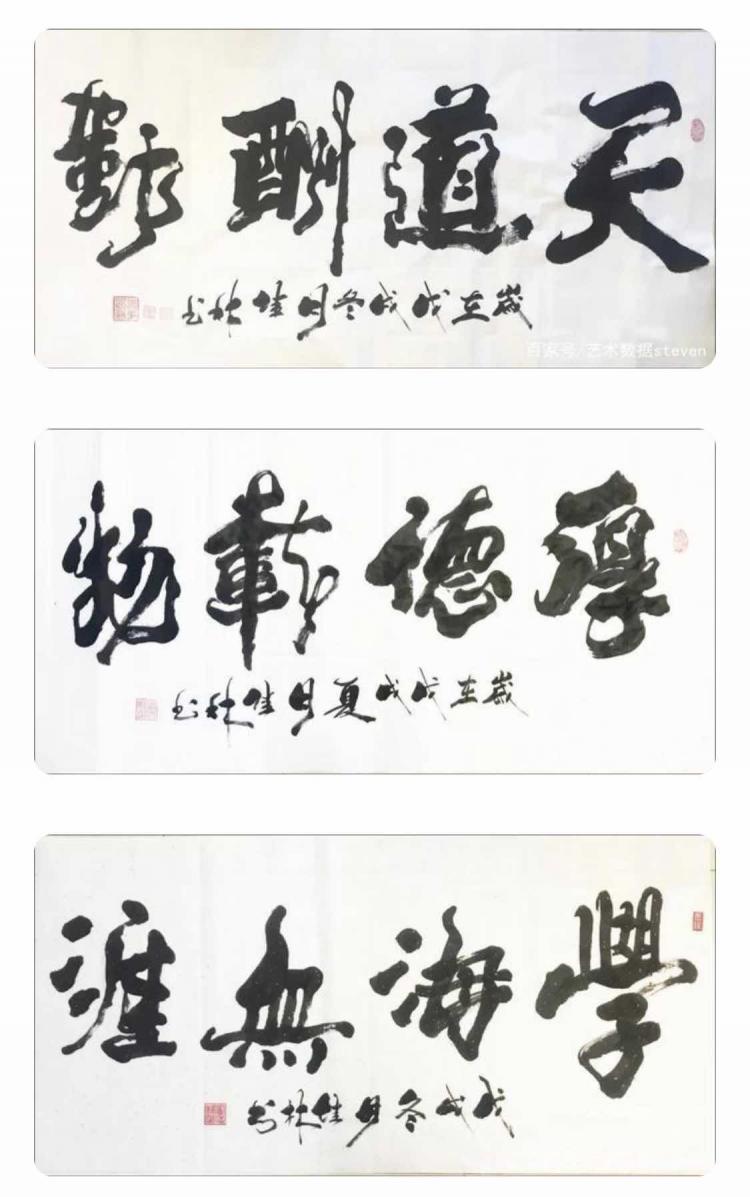 天道酬勤
歲在戊戌冬月佳林书
百家号/艺术数据steven
厚德載物
歲在戊戌夏月佳林书
學海無涯
戊戌冬月佳林书